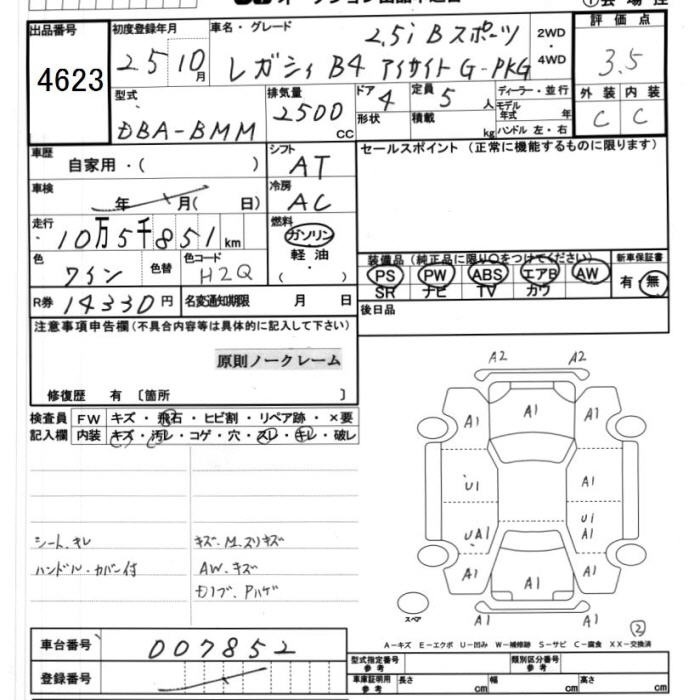 出品番号
4623
初度登録年月
25 10月
車名・グレード
2.5i Bスポーツ
レガシィ B4 アイサイト G-PKG
2WD
・
4WD
評価点
3.5
外装 内装
C C
型式
DBA-BMM
排気量
2500 CC
ドア 4
形状
定員 5 人
積載 kg
ディーラー・並行
モデル年式 年
ハンドル 左・右
車歴
自家用・( )
シフト
AT
セールスポイント (正常に機能するものに限ります)
車検
年 月( 日)
冷房
AC
走行
10万5千851km
燃料
ガソリン
軽油
( ・ )
色
ワイン
色替
色コード
H2Q
装備品 (純正品に限り○をつけてください)
PS PW ABS エアB AW
SR ナビ TV カワ
新車保証書
有・無
R券 14330円
名変通知期限 月 日
後日品
注意事項申告欄(不具合内容等は具体的に記入して下さい)
原則ノークレーム
修復歴 有 〔箇所 〕
検査員
記入欄
FW キズ・飛石・ヒビ割・リペア跡・×要
内装 キズ・汚レ・コゲ・穴・スレ・キレ・破レ
シート.キレ
ハンドル・カバー付
キズ.M.スリキズ
AW.キズ
A2 A2
A1
A1 A1
U1 A1
A1
U1
UA1 A1
A1 A1 A1
A1 A1
スペア
A-キズ E-エクボ U-凹み W-補修跡 S-サビ C-腐食 XX-交換済
車台番号
007852
登録番号
型式指定番号
参考
類別区分番号
参考
車庫証明用
参考
長さ cm 幅 cm 高さ cm